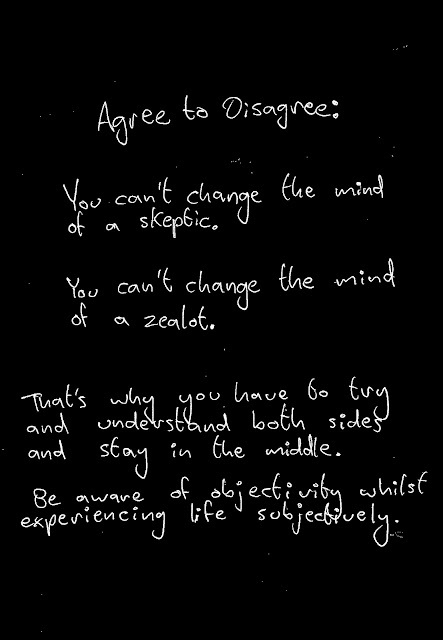 Agree to Disagree:
You can't change the mind
of a skeptic.
You can't change the mind
of a zealot.
That's why you have to try
and understand both sides
and stay in the middle.
Be aware of objectivity whilst
experiencing life subjectively.